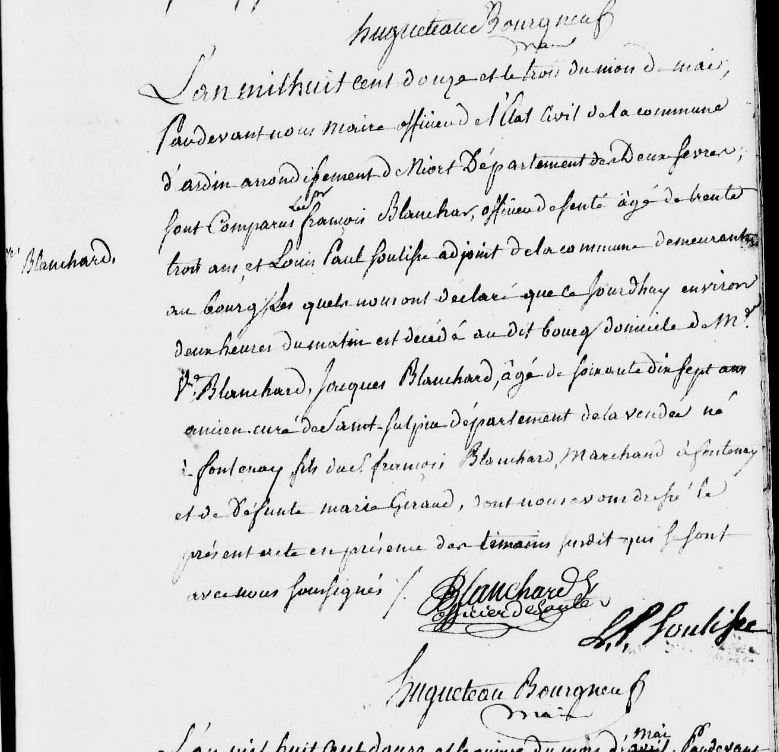 hugueteau Bourgneuf
maire
L'an mil huit cent douze et le trois du mois de mai,
Pardevant nous maire officier de l'État Civil de la commune
d'ardin arrondissement de Niort Département des Deux sevres,
sont Comparus Le Sr françois Blanchar, officier de senté âgé de trente
trois ans, et Louis Paul Soulisse adjoint de la commune demeurants
Blanchard,
au bourg, Les quels nous ont déclaré que ce Jourdhuy environ
deux heures du matin est décédé au dit bourg domicile de Mr
Ve Blanchard, Jacques Blanchard, âgé de soixante dix sept ans
ancien curé de Saint-Sulpice département de la vendée né
à fontenay fils du S. françois Blanchard, Marchand à fontenay
et de Défunte marie Giraud, dont nous avons dressé le
présent acte en présence des témains susdit qui se sont
avec nous soussignés /.
Blanchard
officier de Sante
L. P. Soulisse
hugueteau Bourgneuf
Maire
L'an mil huit cent douze et le quinze du mois d'avril mai Pardevant